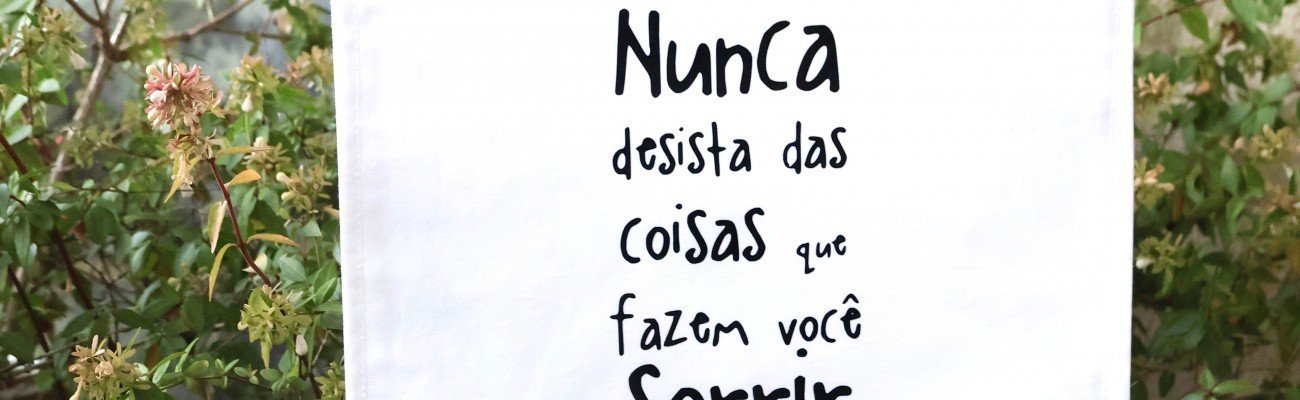 Nunca
desista das
coisas que
fazem você
Sorrir